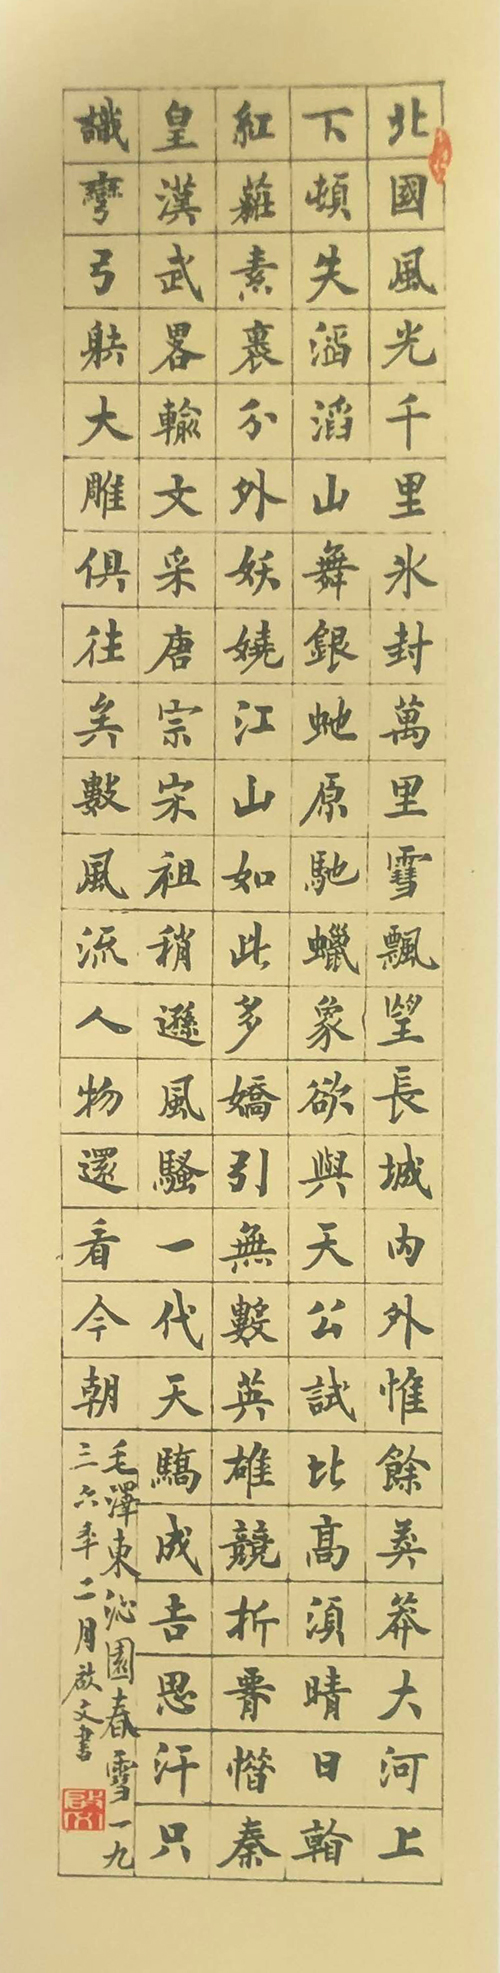 北國風光千里氷封萬里雪飄望長城内外惟餘莽莽大河上
下頓失滔滔山舞銀虵原馳蠟象欲與天公試比高須晴日看
紅裝素裹分外妖嬈江山如此多嬌引無數英雄競折腰惜秦
皇漢武畧輸文采唐宗宋祖稍遜風騷一代天驕成吉思汗只
識彎弓射大雕俱往矣數風流人物還看今朝
毛澤東沁園春雪一九
三六年二月啟文書